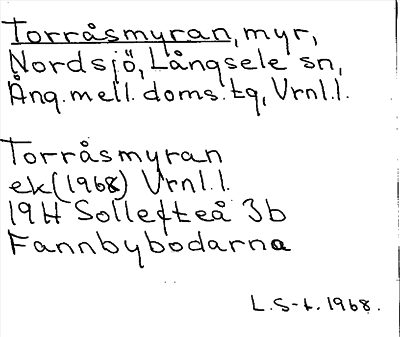 Torråsmyran, myr,
Nordsjö, Långsele sn,
Ång. mell. doms. tg, Vrnl. l.
Torråsmyran
ek (1968) Vrnl. l.
19H Sollefteå 3b
Fannbybodarna
L. S-t. 1968.